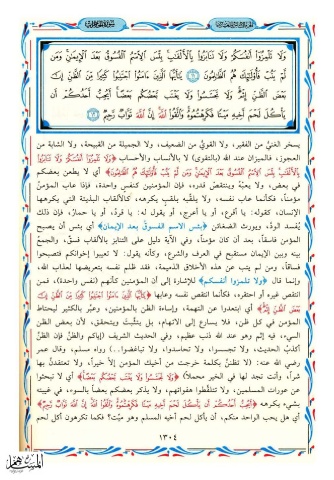 وَلَا تَلْمِزُوٓا۟ أَنفُسَكُمْ وَلَا تَنَابَزُوا۟ بِٱلْأَلْقَـٰبِ بِئْسَ ٱلِٱسْمُ ٱلْفُسُوقُ بَعْدَ ٱلْإِيمَـٰنِ وَمَن
لَّمْ يَتُبْ فَأُو۟لَـٰٓئِكَ هُمُ ٱلظَّـٰلِمُونَ ١١ يَـٰٓأَيُّهَا ٱلَّذِينَ ءَامَنُوا۟ ٱجْتَنِبُوا۟ كَثِيرًا مِّنَ ٱلظَّنِّ إِنَّ
بَعْضَ ٱلظَّنِّ إِثْمٌ وَلَا تَجَسَّسُوا۟ وَلَا يَغْتَب بَّعْضُكُم بَعْضًا أَيُحِبُّ أَحَدُكُمْ أَن
يَأْكُلَ لَحْمَ أَخِيهِ مَيْتًا فَكَرِهْتُمُوهُ وَٱتَّقُوا۟ ٱللَّهَ إِنَّ ٱللَّهَ تَوَّابٌ رَّحِيمٌ ١٢
يسخر الغنيّ من الفقير، ولا القويّ من الضعيف، ولا الجميلة من القبيحة، ولا الشابة من
العجوز، فالميزان عند الله (بالتقوى) لا بالأنساب والأحساب ﴿وَلَا تَلْمِزُوٓا۟ أَنفُسَكُمْ وَلَا تَنَابَزُوا۟
بِٱلْأَلْقَـٰبِ بِئْسَ ٱلِٱسْمُ ٱلْفُسُوقُ بَعْدَ ٱلْإِيمَـٰنِ وَمَن لَّمْ يَتُبْ فَأُو۟لَـٰٓئِكَ هُمُ ٱلظَّـٰلِمُونَ﴾ أي لا يطعن بعضكم
في بعض، ولا يعبْهُ وينتقصْ قدره، فإن المؤمنين كنفس واحدة، فإذا عاب المؤمنُ
مؤمناً، فكأنما عاب نفسه، ولا يلقّبه بلقبٍ يكرهه، كالألقاب البذيئة التي يكرهها
الإنسان، كقوله: يا أقرع، أو يا أعرج، أو يقول له: يا قرد، أو يا حمار، فإن ذلك
يُفسد الودَّ، ويورث الضغائن ﴿بئس الاسم الفسوق بعد الإيمان﴾ أي بئس أن يصبح
المؤمن فاسقاً، بعد أن كان مؤمناً، وفي الآية دليل على التنابز بالألقاب فسق، والجمعُ
بينه وبين الإيمان مستقبح في العرف والشرع، وكأنه يقول: لا تعيبوا إخوانكم فتصبحوا
فساقاً، ومن لم يتب عن هذه الأخلاق الذميمة، فقد ظلم نفسه بتعريضها لعذاب الله،
وإنما قال ﴿ولا تلمزوا أنفسكم﴾ للإشارة إلى أن المؤمنين كأنهم (نفس واحدة)، فمن
انتقص غيره أو احتقره، فكأنما انتقص نفسه وعابها ﴿يَـٰٓأَيُّهَا ٱلَّذِينَ ءَامَنُوا۟ ٱجْتَنِبُوا۟ كَثِيرًا مِّنَ ٱلظَّنِّ إِنَّ
بَعْضَ ٱلظَّنِّ إِثْمٌ﴾ أي ابتعدوا عن التهمة، وإساءة الظن بالمؤمنين، وعبّر بالكثير ليحتاط
المؤمن في كل ظن، فلا يسارع إلى الاتهام، بل يتثبَّت ويتحقق، لأن بعض الظن
السيىء، فيه إثم وهو عند الله ذنب عظيم، وفي الحديث الشريف (إياكم والظنَّ فإن الظنَّ
أكذبُ الحديث، ولا تجسسوا، ولا تحاسدوا، ولا تباغضوا..) رواه مسلم، وقال عمر
رضي الله عنه: (لا تظننَّ بكلمة خرجت من أخيك المؤمن إلاَّ خيراً، ولا تعتقدنَّ بها
شراً، وأنت تجد لها في الخير محملاً) ﴿وَلَا تَجَسَّسُوا۟ وَلَا يَغْتَب بَّعْضُكُم بَعْضًا﴾ أي لا تبحثوا
عن عورات المسلمين، ولا تتلقَّطوا هفواتهم، ولا يذكر بعضكم بعضاً بالسوء، في غيبته
بشيء يكرهه ﴿أَيُحِبُّ أَحَدُكُمْ أَن يَأْكُلَ لَحْمَ أَخِيهِ مَيْتًا فَكَرِهْتُمُوهُ وَٱتَّقُوا۟ ٱللَّهَ إِنَّ ٱللَّهَ تَوَّابٌ رَّحِيمٌ﴾
أي هل يحب الواحد منكم، أن يأكل لحم أخيه المسلم وهو ميّت؟ فكما تكرهون أكل لحم
١٣٠٤